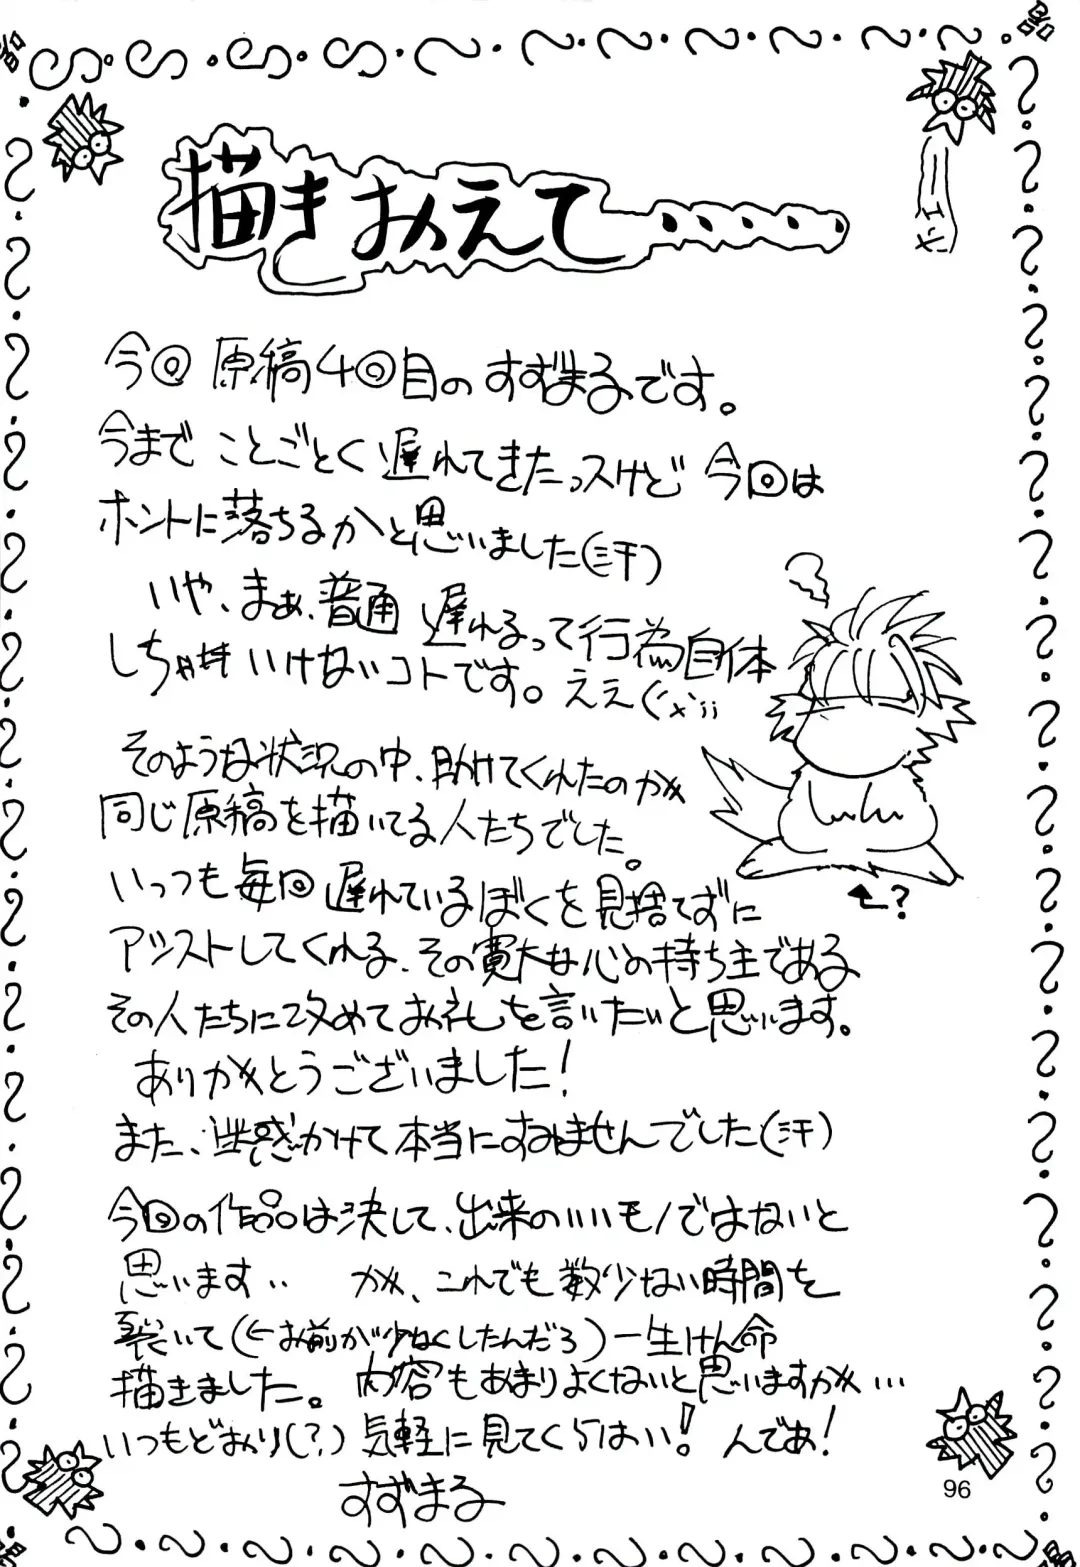 描きおえて・・・・・
今回原稿4回目のすずまるです。
今までことごとく遅れてきたっスけど今回は
ホントに落ちるかと思いました(汗)
いや、まぁ、普通遅れるって行為自体
しちゃいけないコトです。ええ(´x`;;
そのような状況の中、助けてくれたのが
同じ原稿を描いてる人たちでした。
いっつも毎回遅れているぼくを見捨てずに
アシストしてくれる、その寛大な心の持ち主である
その人たちに改めてお礼を言いたいと思います。
ありがとうございました!
また、迷惑かけて本当にすみませんでした(汗)
←?
今回の作品は決して、出来のいいモノではないと
思います‥ が、これでも数少ない時間を
裂いて(←お前が少なくしたんだろ)一生けん命
描きました。内容もあまりよくないと思いますが…
いつもどおり(?)気軽に見てくらはい! んであ!
すずまる
96